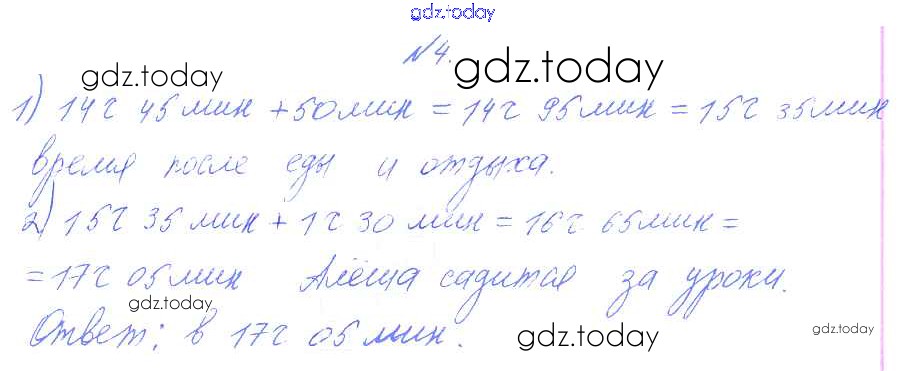 gdz.today
№4.
gdz.today
gdz.today
1) 14 ч 45 мин + 50 мин = 14 ч 95 мин = 15 ч 35 мин
время после еды и отдыха.
2) 15 ч 35 мин + 1 ч 30 мин = 16 ч 65 мин =
= 17 ч 05 мин Алёша садится за уроки.
gdz.today
Ответ: в 17 ч 05 мин.
gdz.today
gdz.today